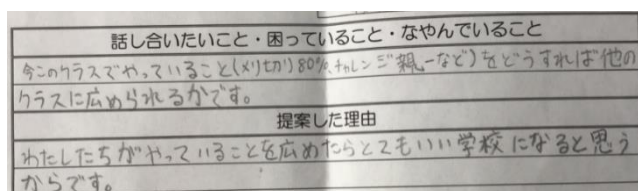 話し合いたいこと・困っていること・なやんでいること
今このクラスでやっていること(メリセカ)80%、チャレンジ親一など)をどうすれば他の
クラスに広められるかです。
提案した理由
わたしたちがやっていることを広めたらとてもいい学校になると思う
からです。